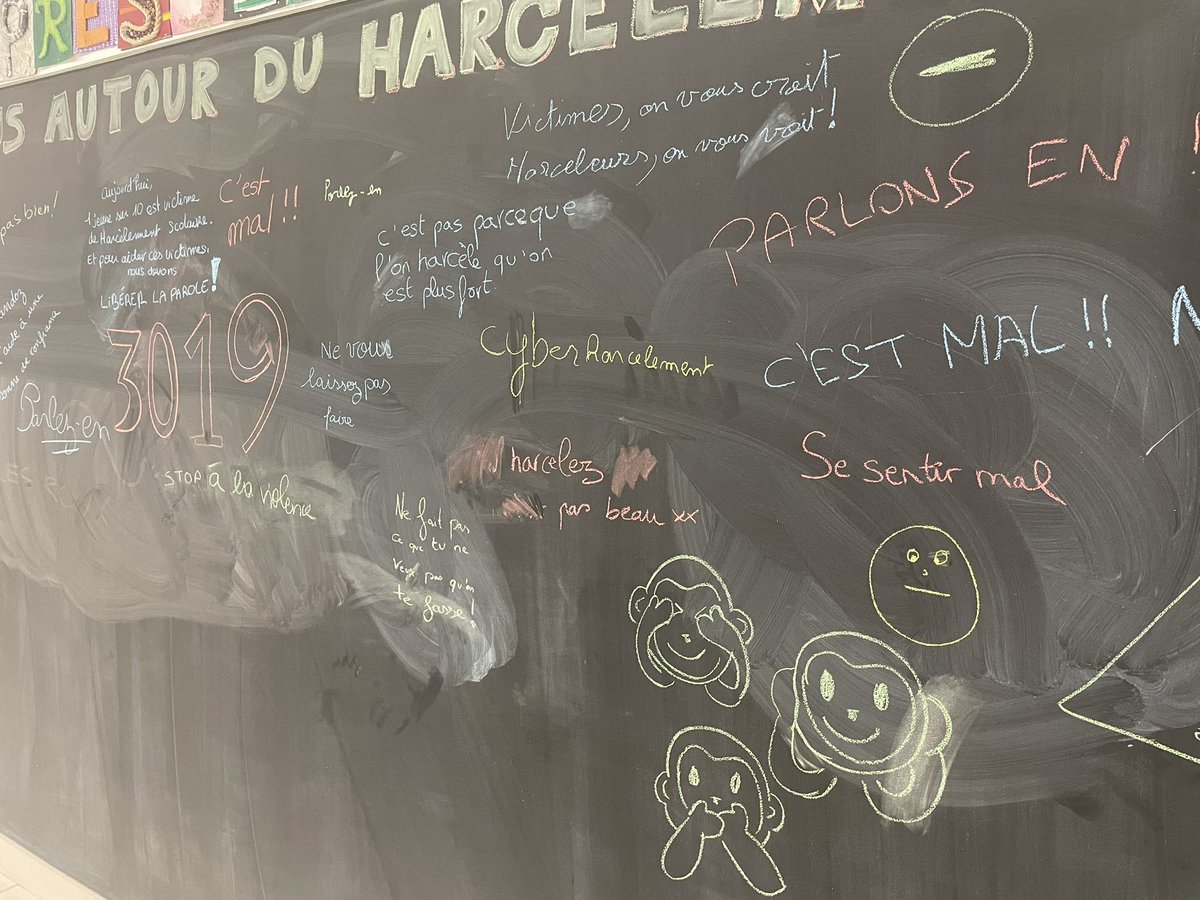 RES
US AUTOUR DU HARCÈLEM
Victimes, on vous croit
Harceleurs, on vous voit!
PARLONS EN !
pas bien!
Aujourd'hui,
1 jeune sur 10 est victime
de Harcèlement Scolaire.
Et pour aider ces victimes,
nous devons
LIBÉRER LA PAROLE!
C'est
mal!!
Parlez-en
c'est pas parceque
l'on harcèle qu'on
est plus fort
andez
l'aide à une
de confiance
Parlez-en
3019
Ne vous
laissez pas
faire
CyberHarcelement
C'EST MAL!!
STOP à la violence
harcelez
pas beau xx
Se sentir mal
Ne fait pas
ce que tu ne
veux pas qu'on
te fasse!